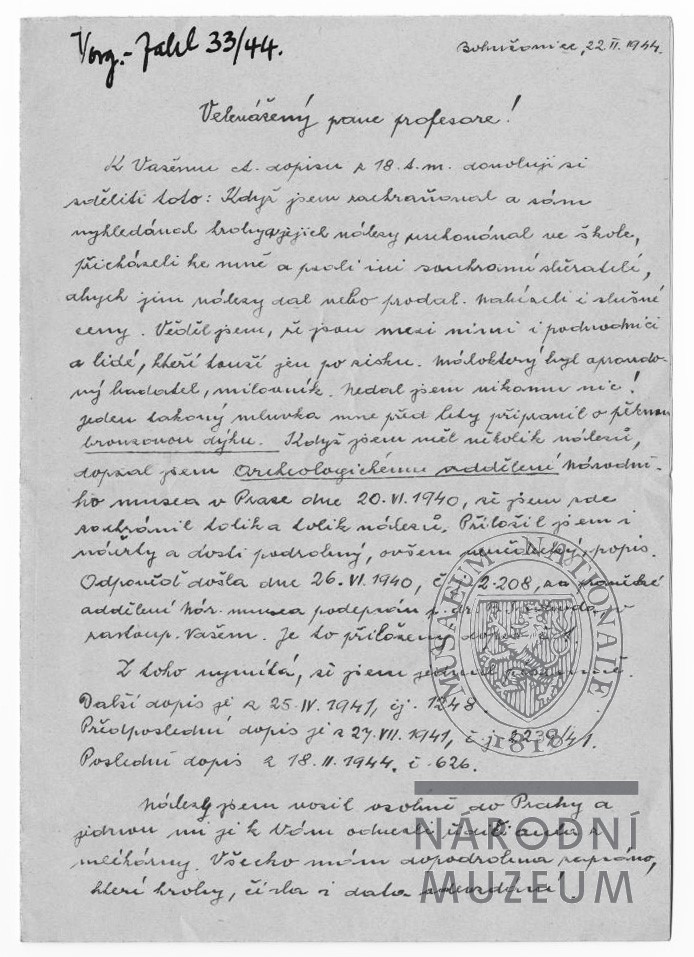 Vorg.-Zahl 33/44.
22.II.1944.
Velevážený pane profesore!
K Vašemu ct. dopisu z 18. t. m. dovoluji si
sděliti toto: Když jsem zachraňoval a sám
vyhledával hroby a jejich nálezy uschovával ve škole,
přicházeli ke mně a psali mi soukromí sběratelé,
abych jim nálezy dal nebo prodal. Nabízeli i slušné
ceny. Věděl jsem, že jsou mezi nimi i podvodníci
a lidé, kteří touží jen po zisku. Málokterý byl opravdo-
vý badatel, milovník. Nedal jsem nikomu nic!
Jeden takový mluvka mne před lety připravil o pěknou
bronzovou dýku. Když jsem měl několik nálezů,
dopsal jsem Archeologickému oddělení Národní-
ho musea v Praze dne 20.VI.1940, že jsem zde
zachránil tolik a tolik nálezů. Přiložil jsem i
náčrty a dosti podrobný, ovšem popis.
Odpověď došla dne 26.VI.1940, 2.208, za
oddělení Nár. musea podepsán p. dr. v
zastoup. Vašem. Je to přiložený dopis č. 1
Z toho vymítá, že jsem
Další dopis je z 25.IV.1941, čj. 1248.
Předposlední dopis je z 27.VII.1941, č.j. 2239/41.
Poslední dopis z 18.II.1944. č 626.
Nálezy jsem vozil osobně do Prahy a
jednou mi je k Vám odvezli auta z
mlékárny. Všecko mám dopodrobna zapsáno,
které hroby, čísla i data
MUSEUM NATIONALE
1818
NÁRODNÍ
MUZEUM